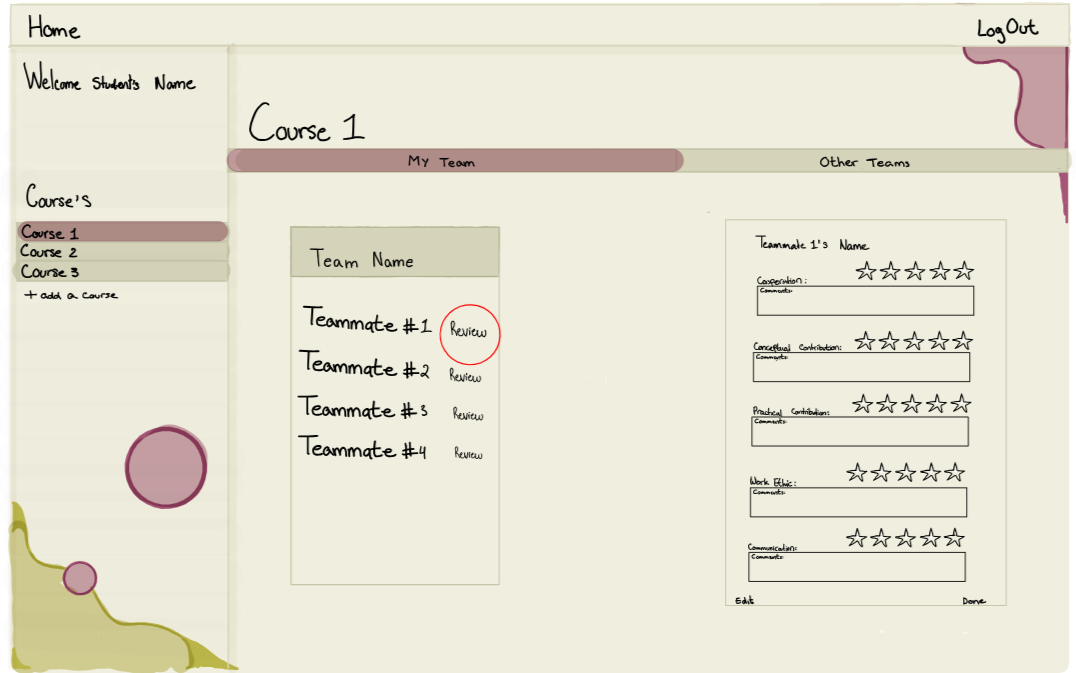 Home
Log Out
Welcome Student's Name
Course 1
My Team
Other Teams
Course's
Course 1
Course 2
Course 3
+ add a course
Team Name
Teammate #1 Review
Teammate #2 Review
Teammate #3 Review
Teammate #4 Review
Teammate 1's Name
Cooperation:
Comments:
Conceptual Contribution:
Comments:
Practical Contribution:
Comments:
Work Ethic:
Comments:
Communication:
Comments:
Edit
Done